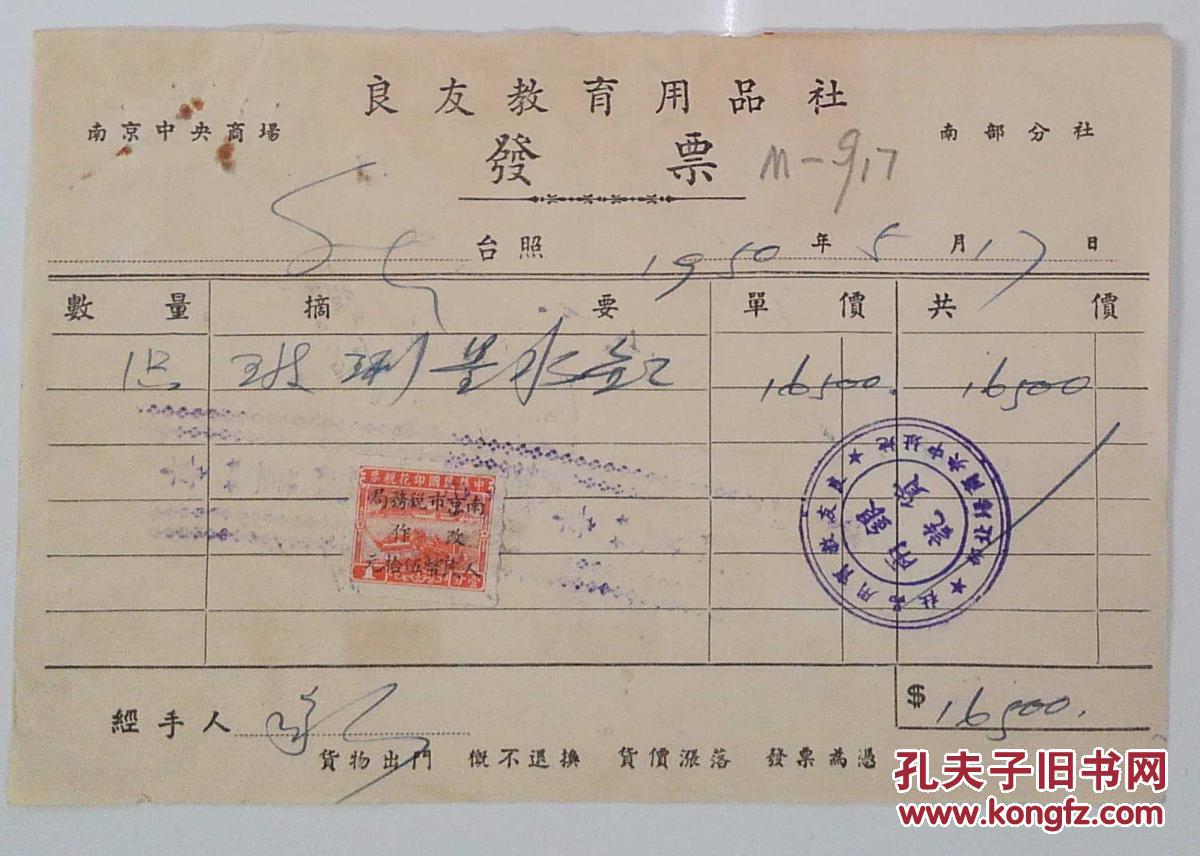 良友教育用品社
南京中央商場 南部分社
發票 m-917
台照 1950年5月17日
數量 摘要 單價 共價
玻璃墨水缸 16500. 16500
中華民國印花稅票
南京市稅務局
改作
人民幣伍拾元
良友教育用品社
貨銀兩訖
$ 16500.
經手人
貨物出門 概不退換 貨價漲落 發票為憑
孔夫子旧书网
www.kongfz.com